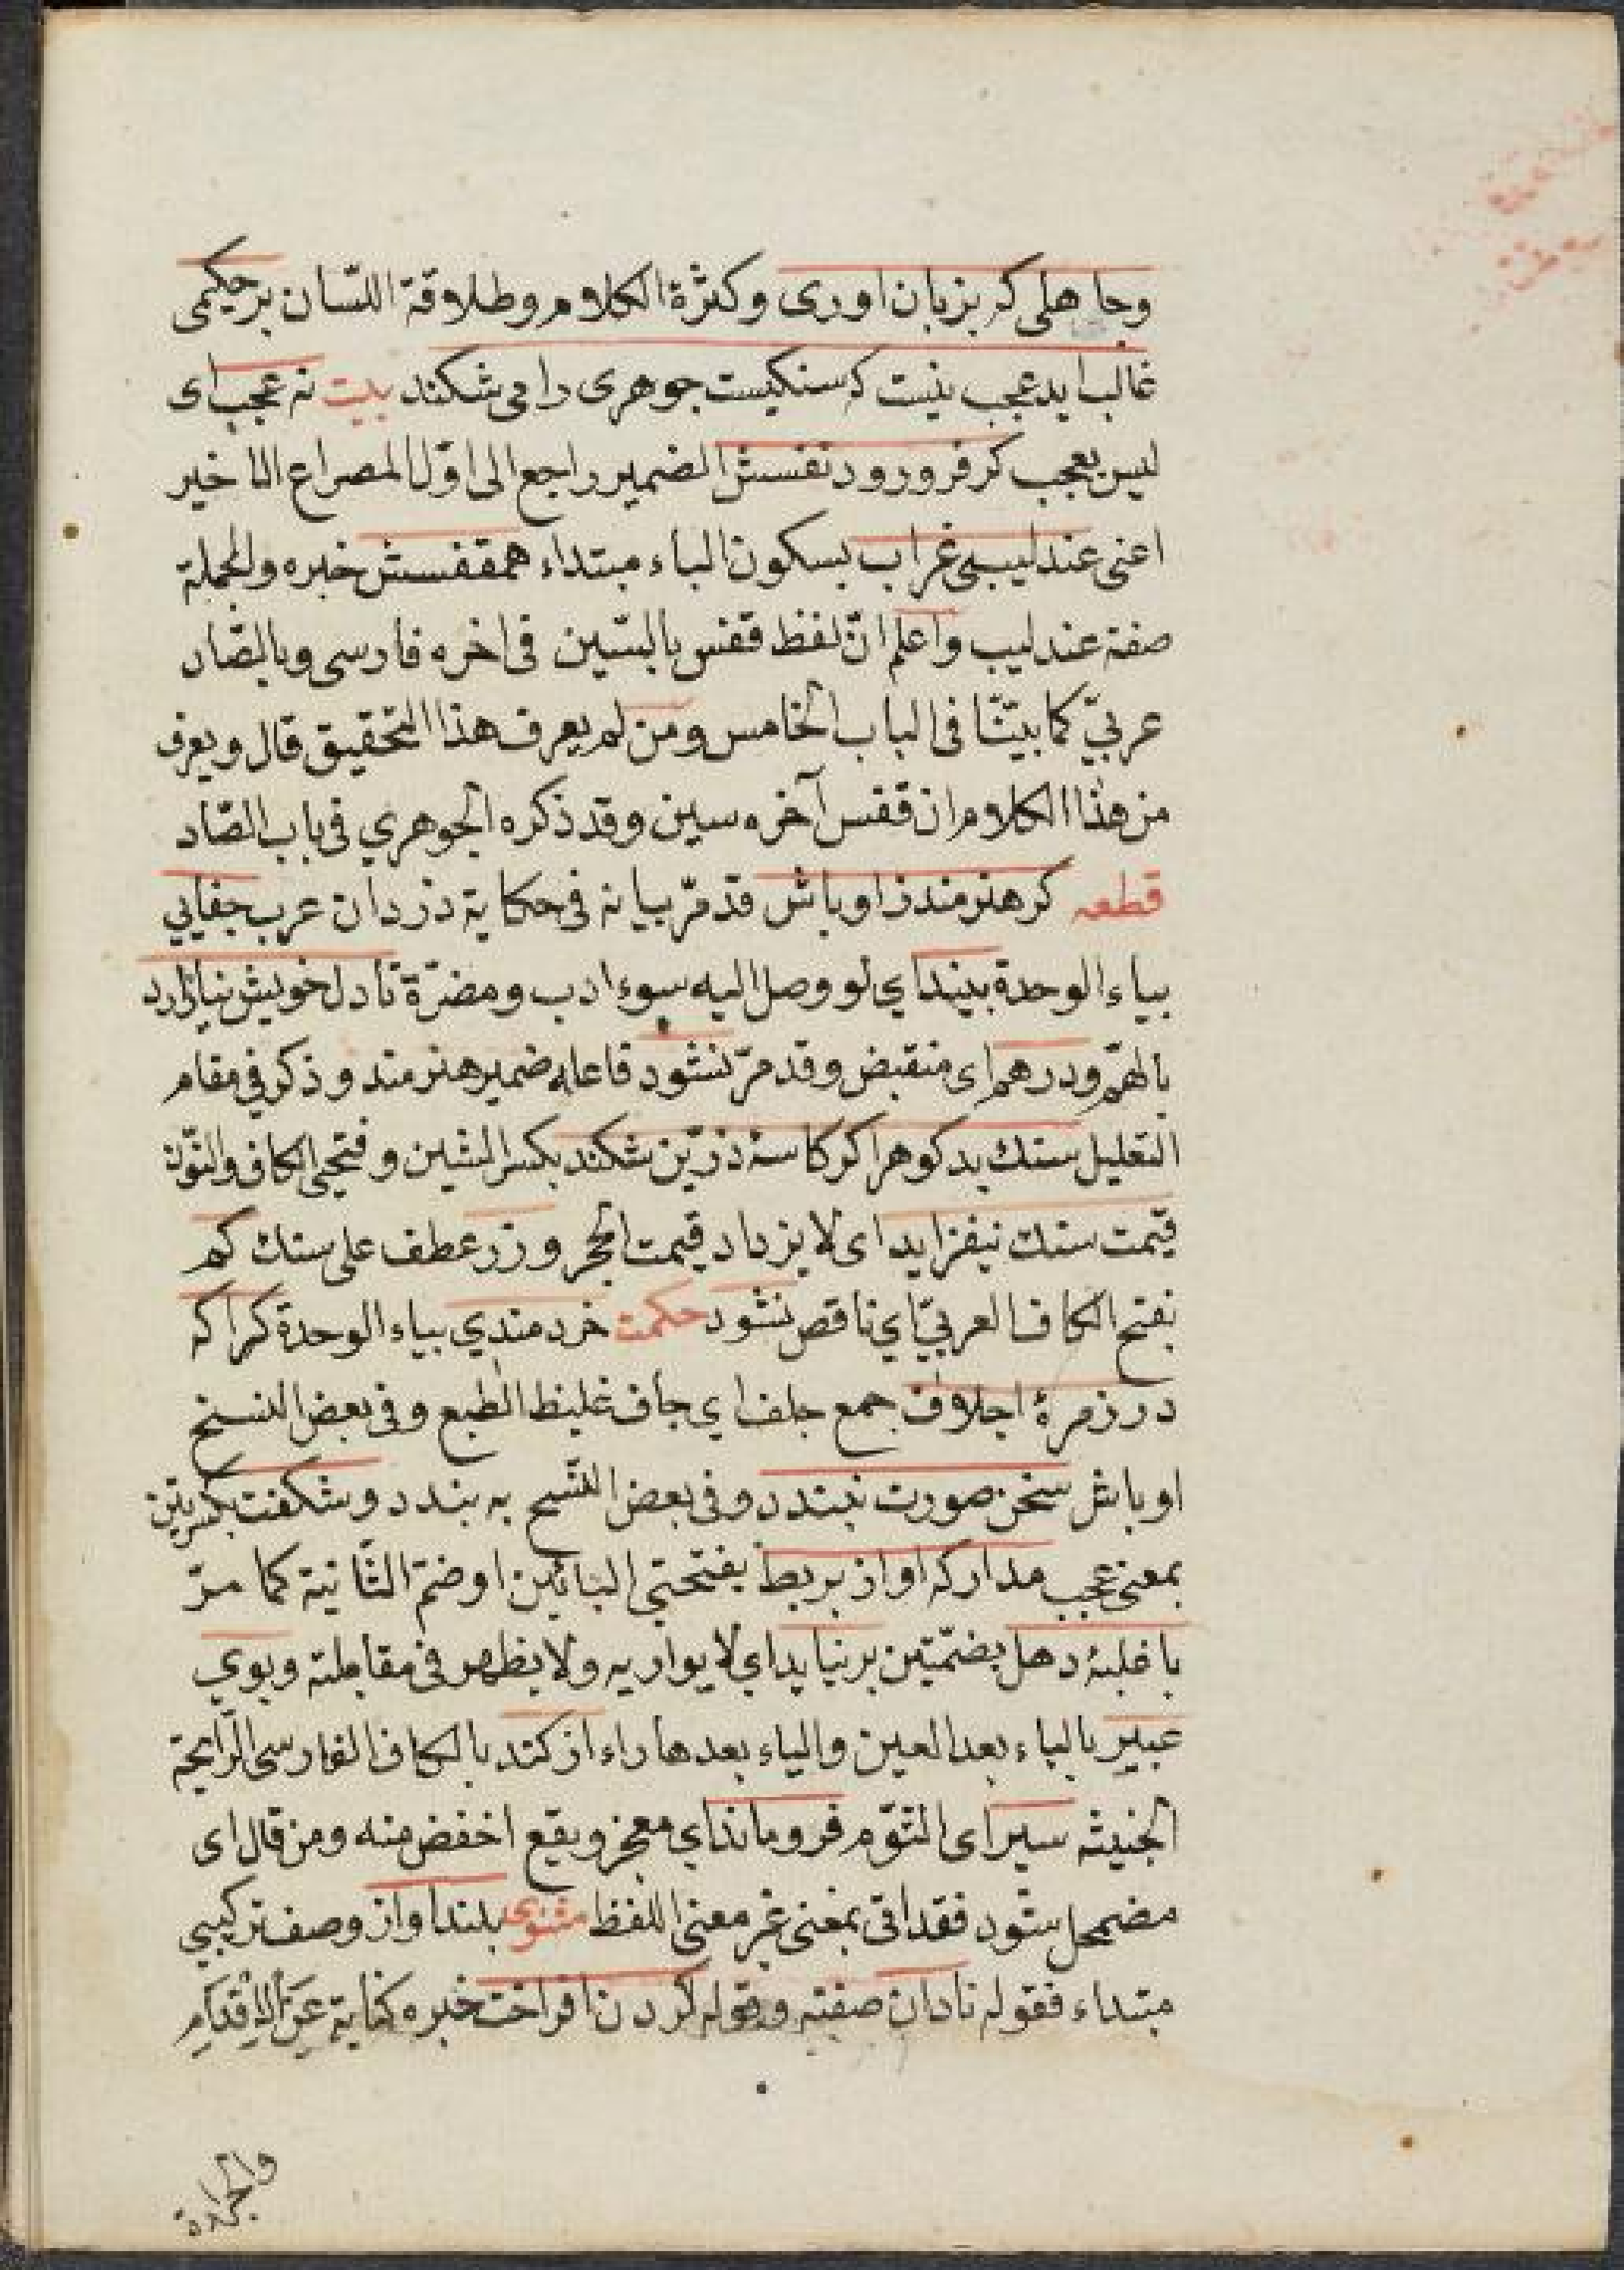 وجاهلى كه بزبان اورى وكثرة الكلام وطلاقة اللسان برحكيمى
غالب ايد عجب نيست كه سنكيست جوهرى را مى شكند بيت نه عجب اى
ليس بعجب كر فرو رود نفسش الضمير راجع الى اوّل المصراع الاخير
اعنى عندليبى غراب بسكون الباء مبتداء همقفسش خبره والجملة
صفة عندليب واعلم انّ لفظ قفس بالسّين فى اخره فارسى وبالصّاد
عربىّ كما بيّنّا فى الباب الخامس ومن لم يعرف هذا التحقيق قال ويعرف
من هذا الكلام ان قفس آخره سين وقد ذكره الجوهري فى باب الصّاد
قطعه كر هنرمند زاوباش قد مرّ بيانه فى حكاية دزدان عرب جفايي
بياء الوحدة بيند اي لو وصل اليه سوء ادب ومضرّة تا دل خويش نيازارد
بالهمّ ودرهم اى منقبض وقد مرّ نشود فاعله ضمير هنرمند وذكر في مقام
التعليل سنك بد كوهر اكر كاسهٔ زرّين شكند بكسر الشين وفتحى الكاف والنّون
قيمت سنك نيفزايد اى لا يزداد قيمت الحجر وزر عطف على سنك كم
بفتح الكاف العربىّ اي ناقص نشود حكمت خردمندي بياء الوحدة كرا كه
در زمرهٔ اجلاف جمع جلف اي جاف غليظ الطبع وفى بعض النسخ
اوباش سخن صورت نبندد وفى بعض النّسخ به بندد وشكفت بكسرتين
بمعنى عجب مدار كه اواز بربط بفتحتي البائين او ضمّ الثّانية كما مرّ
با غلبهٔ دهل بضمّتين برنيايد اي لا يواريه ولا يظهر فى مقابلته وبوي
عبير بالباء بعد العين والياء بعدها راء از كند بالكاف الفارسى الرّايحة
الخبيثه سير اى الثّوم فرو ماند اي معجز ويقع اخفض منه ومن قال اى
مضمحل شود فقد اتى بمعنى غير معنى اللفظ مثنوى بلند اواز وصف تركيبي
مبتداء فقوله نادان صفته وقوله كردن افراخت خبره كناية عَنِ الاِقدَامِ
والجراءة